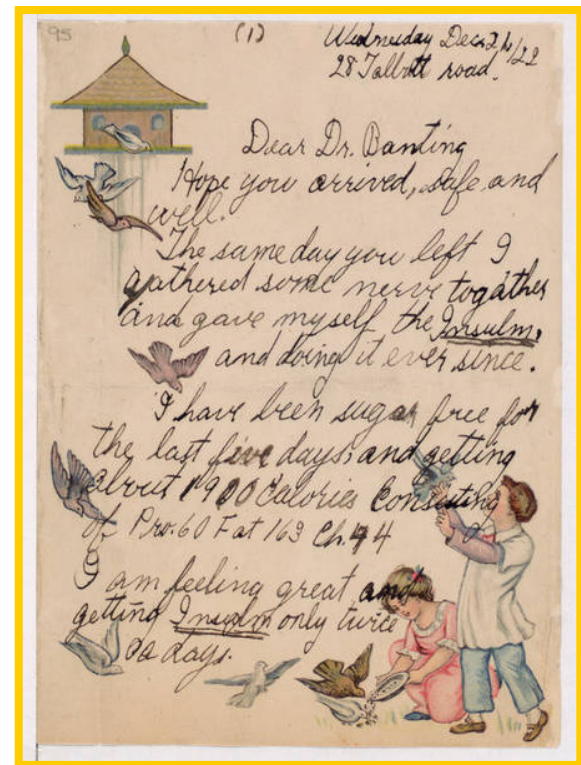 95
(1)
Wednesday Dec. /22
28 Tallott road.
Dear Dr. Banting
Hope you arrived, safe and
well.
The same day you left I
gathered some nerve togather
and gave myself the Insulm,
and doing it ever since.
I have been sugar free for
the last five days; and getting
about 1900 Calories Consisting
of Pro. 60 Fat 163 Ch. 44
I am feeling great and
getting Insulm only twice
a days.